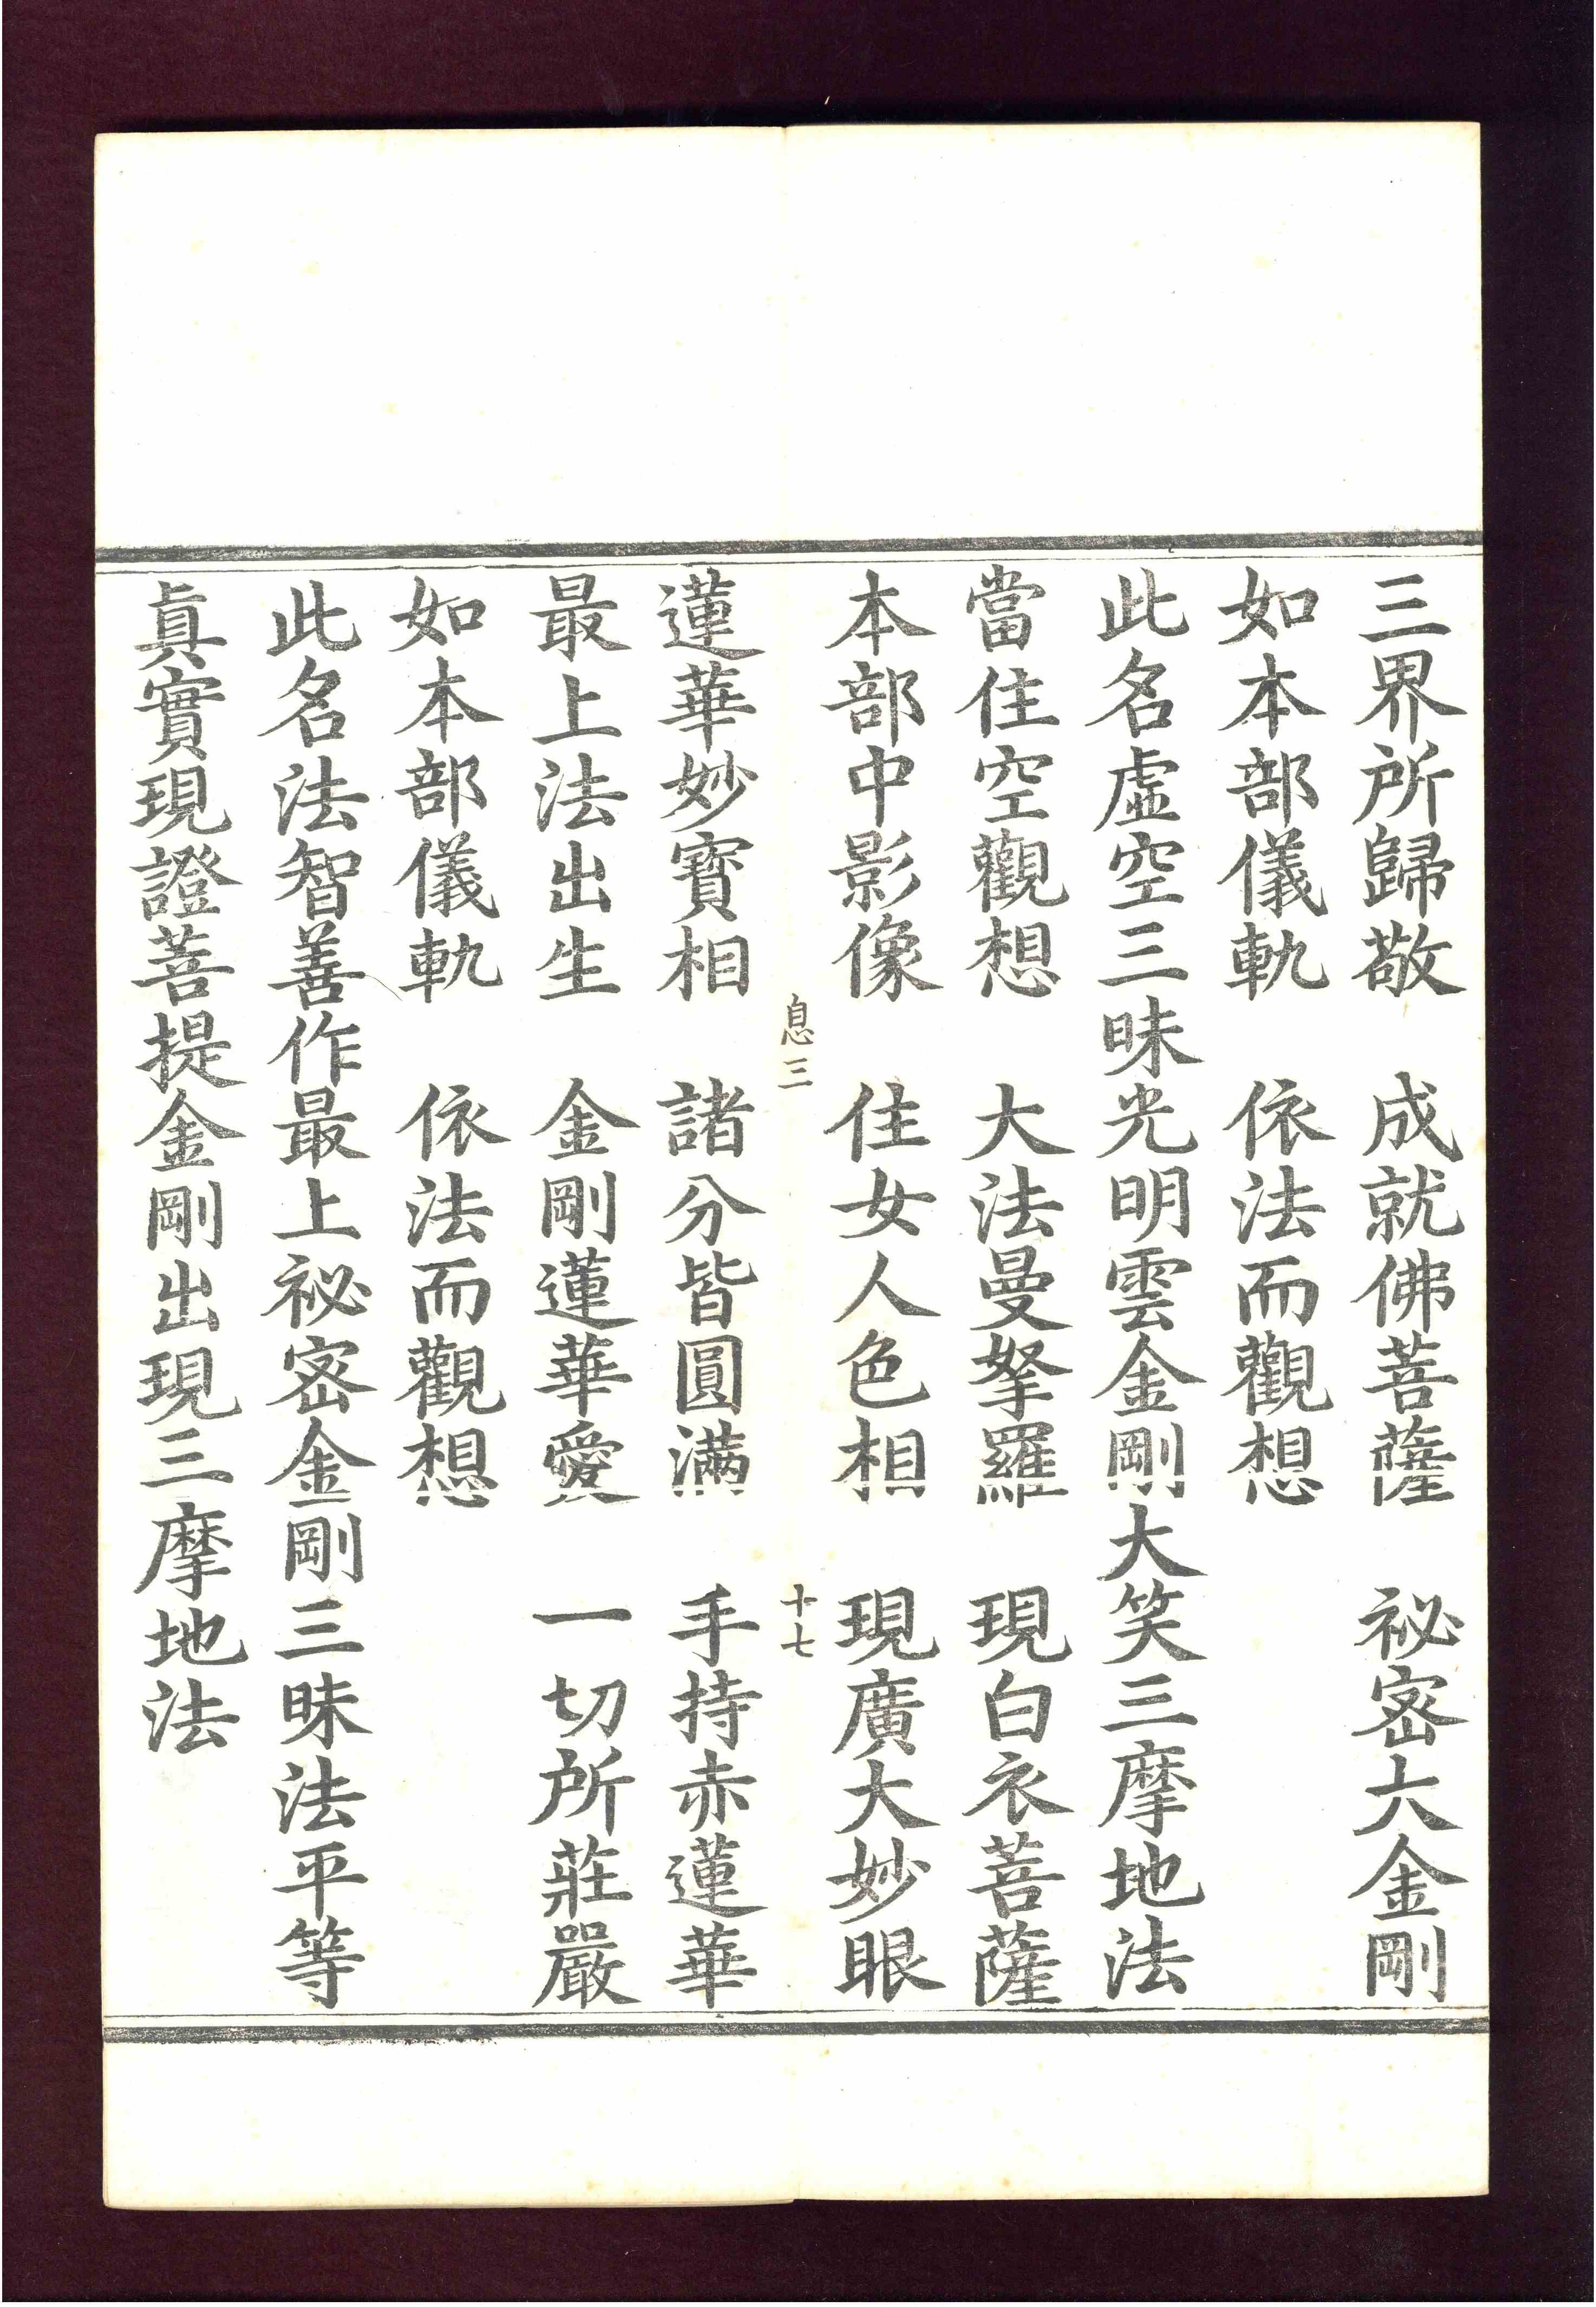 三界所歸敬　成就佛菩薩　祕密大金剛
如本部儀軌　依法而觀想
此名虛空三昧光明雲金剛大笑三摩地法
當住空觀想　大法曼拏羅　現白衣菩薩
本部中影像　住女人色相　現廣大妙眼
息三　十七
蓮華妙寳相　諸分皆圓滿　手持赤蓮華
最上法出生　金剛蓮華愛　一切所莊嚴
如本部儀軌　依法而觀想
此名法智善作最上祕密金剛三昧法平等
眞實現證菩提金剛出現三摩地法